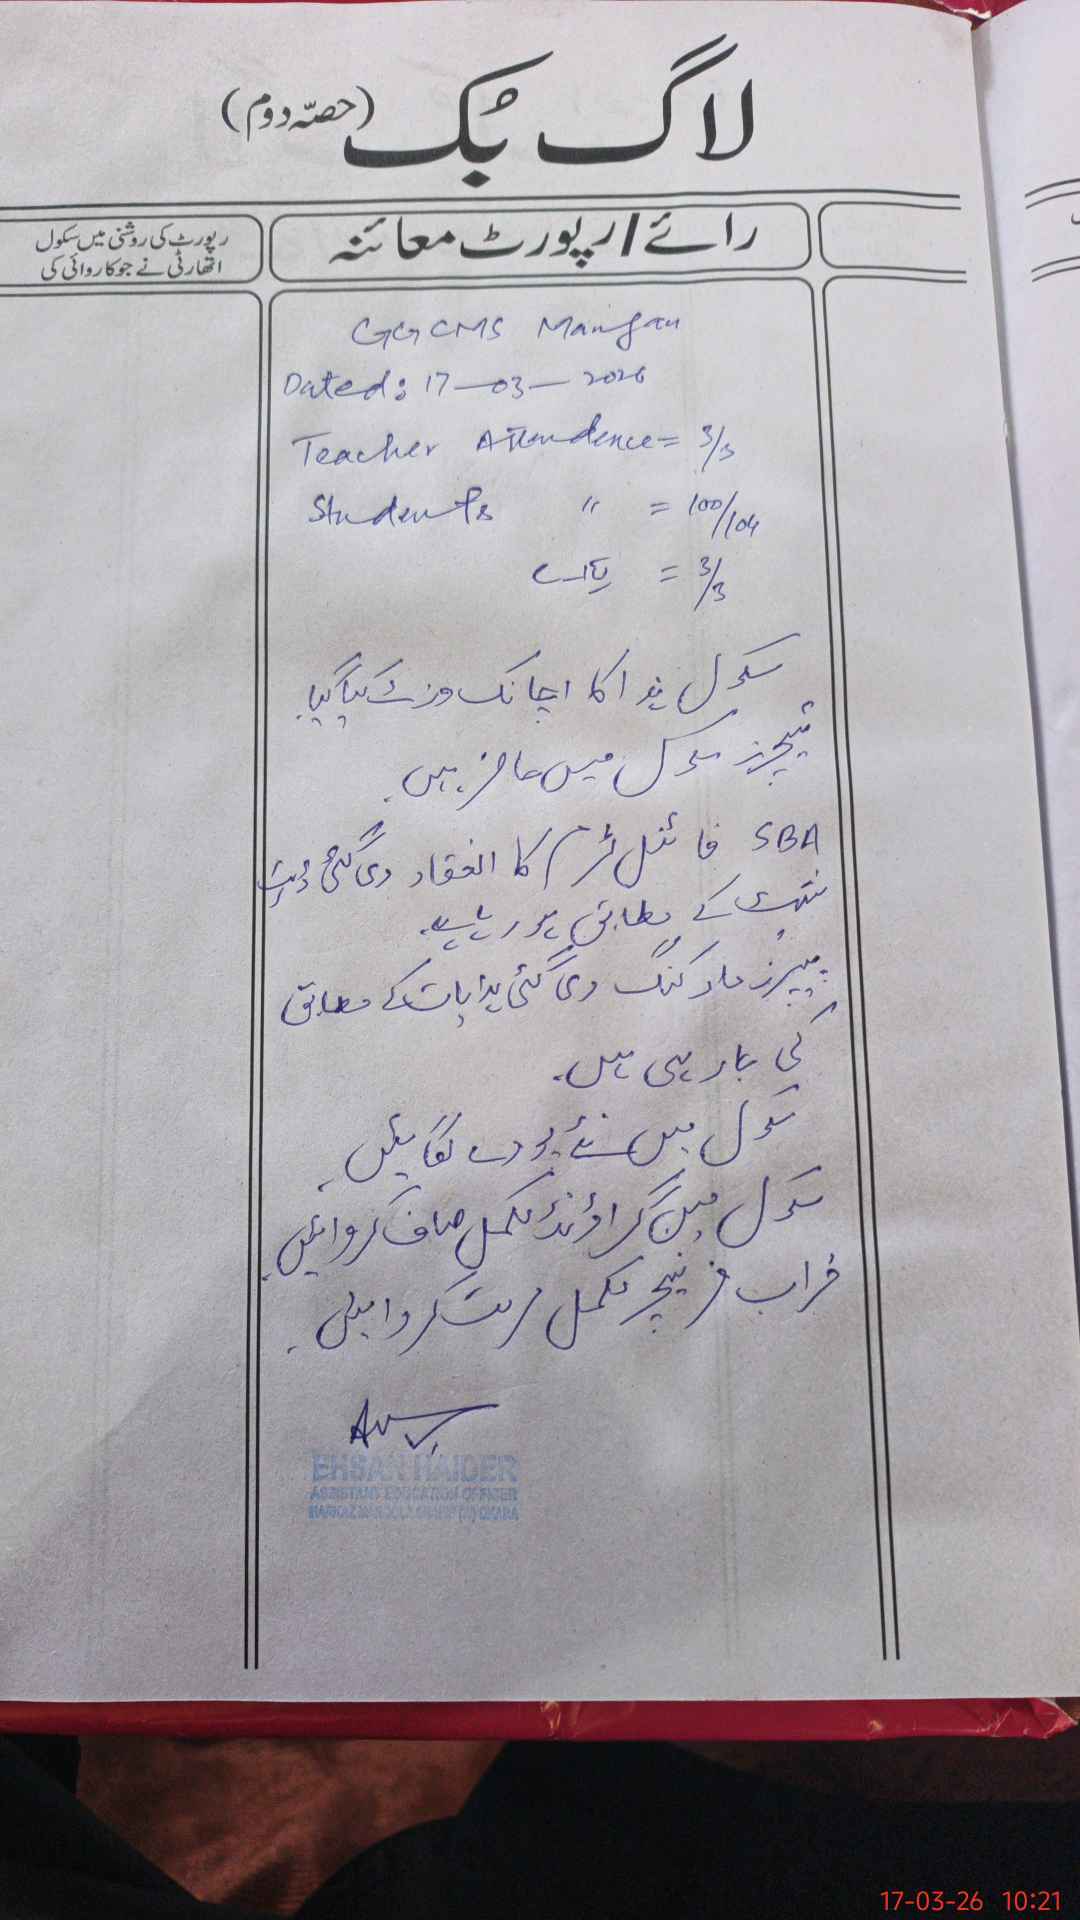 لاگ بُک (حصّہ دوم)
رائے/رپورٹ معائنہ
رپورٹ کی روشنی میں سکول
اتھارٹی نے جو کاروائی کی
GGCMS
Dated: 17-03-2026
Teacher Attendence = 3/3
Students " = 100/104
= 3/3
سکول ہذا کا اچانک وزٹ کیا گیا۔
ٹیچرز سکول میں حاضر ہیں۔
SBA فائنل ٹرم کا انعقاد دی گئی ڈیٹ
شیٹ کے مطابق ہو رہا ہے۔
پیپرز مارکنگ دی گئی ہدایات کے مطابق
کی جا رہی ہیں۔
سکول میں نئے پودے لگائیں۔
سکول میں گراؤنڈ مکمل صاف کروائیں۔
خراب فرنیچر مکمل مرمت کروائیں۔
EHSAN HAIDER
ASSISTANT EDUCATION OFFICER
MARKAZ OKARA
17-03-26 10:21